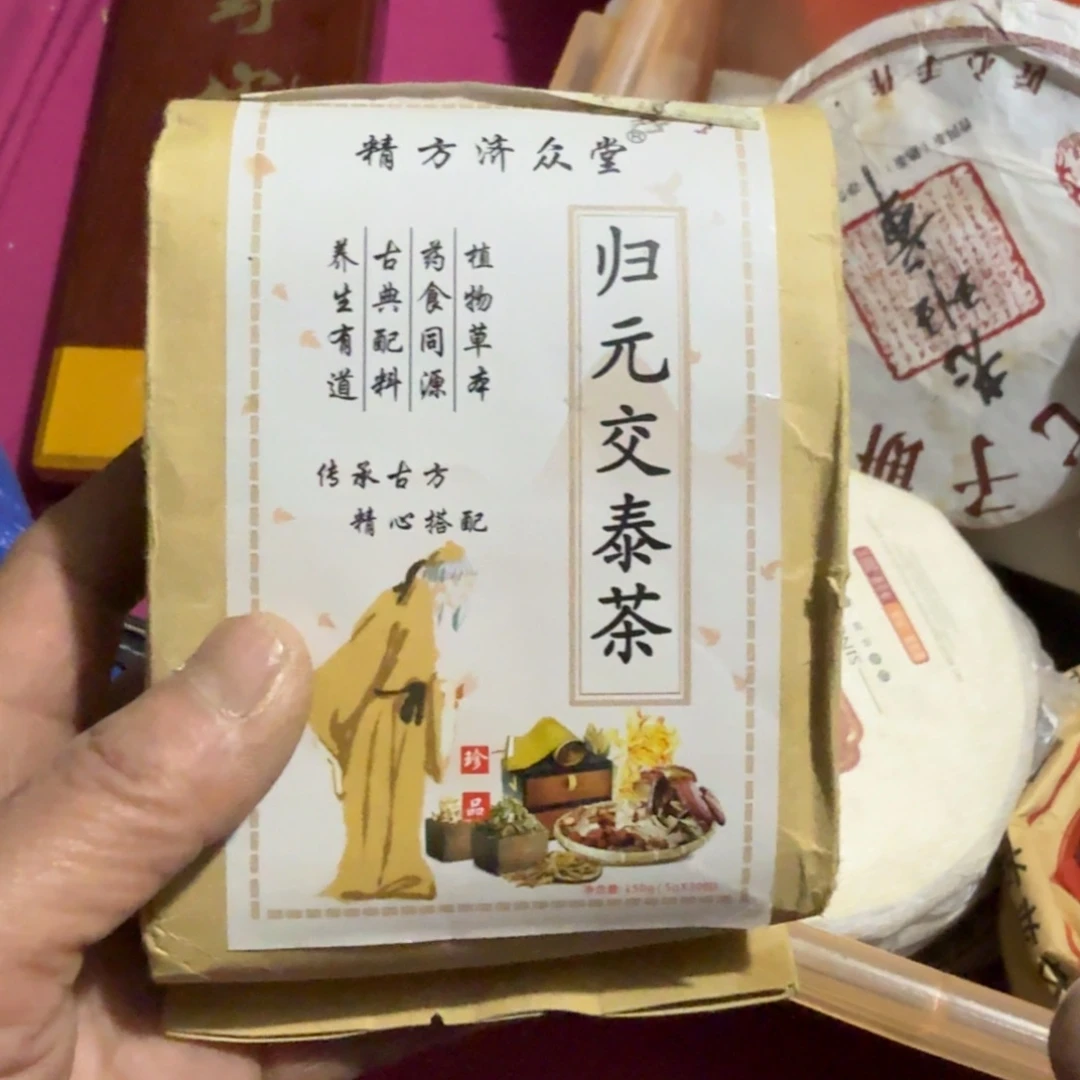 精方济众堂®
归元交泰茶
植物草本
药食同源
古典配料
养生有道
传承古方
精心搭配
珍品
净含量:150g(5gX30包)
匠心手作
老班章